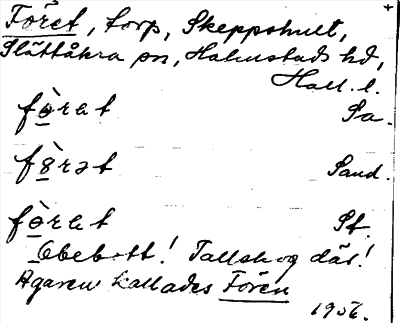 Föret, torp, Skeppshult,
Slättåkra sn, Halmstads hd,
Hall. l.
fø̀rət Sa.
fø̀rət Sand.
fø̀rət St.
Obebott! Tallskog där!
Ägaren kallades Fören
1956.